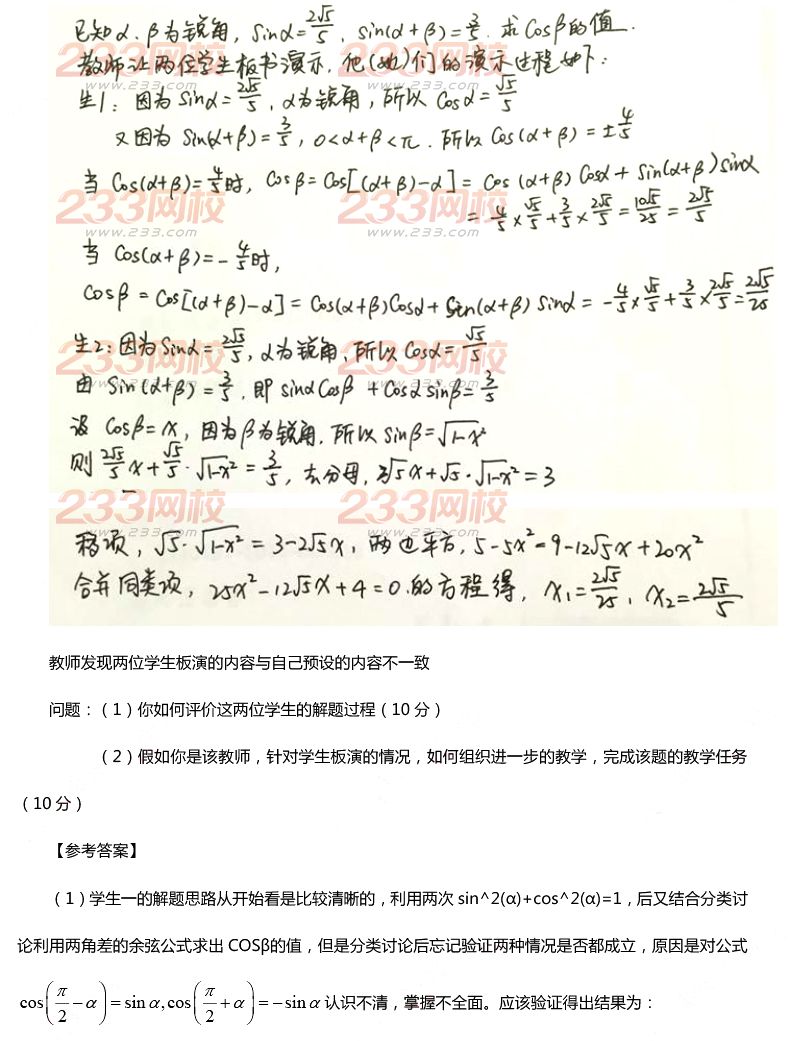 已知α、β为锐角, sinα=2√5/5, sin(α+β)=3/5. 求cosβ的值.
教师让两位学生板书演示, 他(她)们的演示过程如下:
生1: 因为sinα=2√5/5, α为锐角, 所以cosα=√5/5
又因为sin(α+β)=3/5, 0<α+β<π. 所以cos(α+β)=±4/5
当cos(α+β)=4/5时, cosβ=cos[(α+β)-α]=cos(α+β)cosα+sin(α+β)sinα
=4/5×√5/5+3/5×2√5/5=10√5/25=2√5/5
233网校 233网校 233网校
www.233.com www.233.com www.233.com
当cos(α+β)=-4/5时,
cosβ=cos[(α+β)-α]=cos(α+β)cosα+sin(α+β)sinα=-4/5×√5/5+3/5×2√5/5=2√5/25
生2: 因为sinα=2√5/5, α为锐角, 所以cosα=√5/5
233网校 233网校 233网校
www.233.com www.233.com www.233.com
由sin(α+β)=3/5, 即sinαcosβ+cosαsinβ=3/5
设cosβ=x, 因为β为锐角, 所以sinβ=√(1-x²)
则2√5/5x+√5/5·√(1-x²)=3/5, 去分母, 2√5x+√5·√(1-x²)=3
233网校 233网校 233网校
移项, √5·√(1-x²)=3-2√5x, 两边平方, 5-5x²=9-12√5x+20x²
合并同类项, 25x²-12√5x+4=0.的方程得, x₁=2√5/25, x₂=2√5/5
教师发现两位学生板演的内容与自己预设的内容不一致
问题：（1）你如何评价这两位学生的解题过程（10 分）
（2）假如你是该教师，针对学生板演的情况，如何组织进一步的教学，完成该题的教学任务
（10 分）
【参考答案】
（1）学生一的解题思路从开始看是比较清晰的，利用两次 sin^2(α)+cos^2(α)=1，后又结合分类讨
论利用两角差的余弦公式求出 COSβ的值，但是分类讨论后忘记验证两种情况是否都成立，原因是对公式
cos(π/2-α)=sinα,cos(π/2+α)=-sinα 认识不清，掌握不全面。应该验证得出结果为：